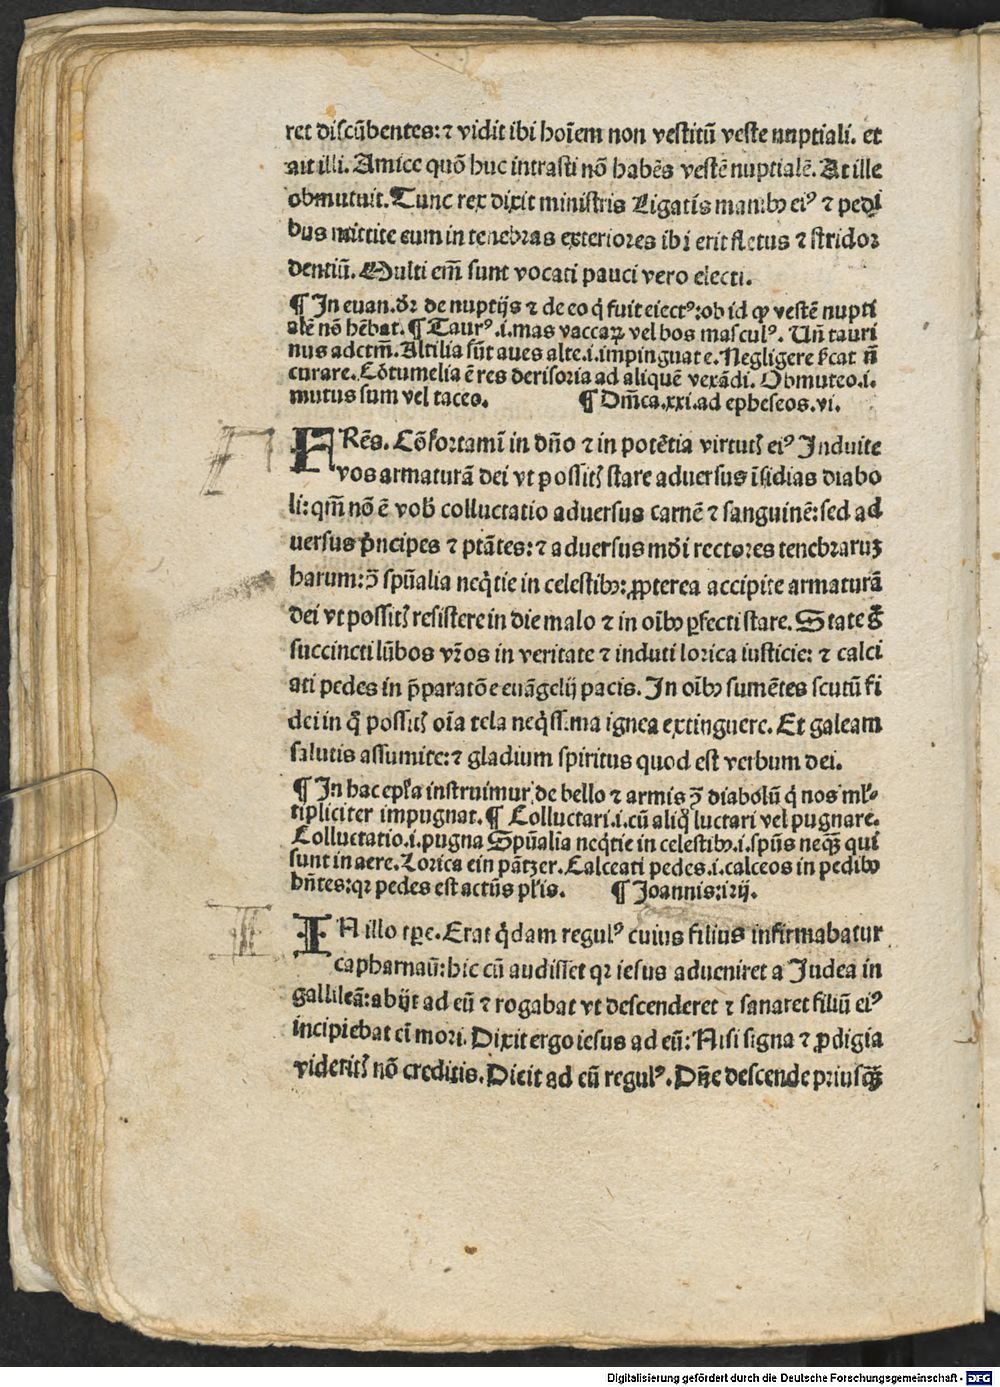 ret discūbentes: ⁊ vidit ibi hoīem non vestitū veste nuptiali. et
ait illi. Amice quō huc intrasti nō habēs vestē nuptialē. At ille
obmutuit. Tunc rex dixit ministris Ligatis manibꝫ eiꝰ ⁊ pedi
bus mittite eum in tenebras exteriores ibi erit fletus ⁊ stridor
dentiū. Multi em̄ sunt vocati pauci vero electi.
¶ In euan. dr̄ de nuptijs ⁊ de eo q̇ fuit eiectꝰ: ob id ꝙ vestē nupti
alē nō hēbat. ¶ Taurꝰ .i. mas vaccaꝝ vel bos masculꝰ. Un̄ tauri
nus adctm̄. Altilia sūt aues alte .i. impinguate. Negligere
curare. Cōtumelia ē res derisoria ad aliquē vexādi. Obmuteo .i.
mutus sum vel taceo. ¶ Dm̄ca .xxi. ad epheseos .vi.
FRēs. Cōfortamī in dn̄o ⁊ in potētia virtutꝭ eiꝰ Induite
vos armaturā dei vt possitꝭ stare aduersus īsidias diabo
li: qm̄ nō ē vob̄ colluctatio aduersus carnē ⁊ sanguinē: sed ad
uersus p̄ncipes ⁊ ptātes: ⁊ aduersus mōi rectores tenebraruꝫ
harum: ↄ̄ spūalia neq̇tie in celestibꝫ: ꝓpterea accipite armaturā
dei vt possitꝭ resistere in die malo ⁊ in oībꝫ ꝑfecti stare. State g̊
succincti lūbos vr̄os in veritate ⁊ induti lorica iusticie: ⁊ calci
ati pedes in p̄paratōe euāgelij pacis. In oībꝫ sumētes scutū fi
dei in q̊ possitꝭ oīa tela neq̇ss.ma ignea extinguere. Et galeam
salutis assumite: ⁊ gladium spiritus quod est verbum dei.
¶ In hac epl̄a instruimur de bello ⁊ armis ↄ̄ diabolū q̇ nos ml̓-
tipliciter impugnat. ¶ Colluctari .i. cū aliq̊ luctari vel pugnare.
Colluctatio .i. pugna Spūalia neq̇tie in celestibꝫ .i. spūs neqꝫ̄ qui
sunt in aere. Lorica ein pātzer. Calceati pedes .i. calceos in pedibꝫ
hn̄tes: qꝛ pedes est actūs pl̓is. ¶ Joannis: iiij.
IN illo tꝑe. Erat q̇dam regulꝰ cuius filius infirmabatur
capharnaū: hic cū audisset qꝛ iesus adueniret a Judea in
gallileā: abijt ad eū ⁊ rogabat vt descenderet ⁊ sanaret filiū eiꝰ
incipiebat eī mori. Dixit ergo iesus ad eū: Nisi signa ⁊ ꝓdigia
videritꝭ nō creditis. Dicit ad eū regulꝰ. Dn̄e descende priusqꝫ̄
Digitalisierung gefördert durch die Deutsche Forschungsgemeinschaft - DFG